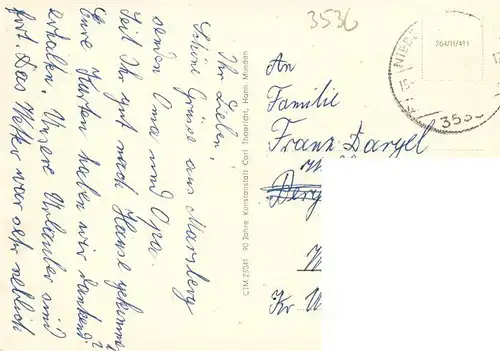 3536
Ihr Lieben!
Schöne Grüsse aus Marsberg
senden Oma und Opa.
Seid Ihr gut nach Hause gekommen?
Eure Karten haben wir dankend
erhalten. Unsere Urlauber sind
fort. Das Wetter war sehr neblich
CTM 25541 90 Jahre Kunstanstalt Carl Thoericht, Hann. Münden
264/II/411
353
An
Familie
Franz Dargel
Berg
Kr W